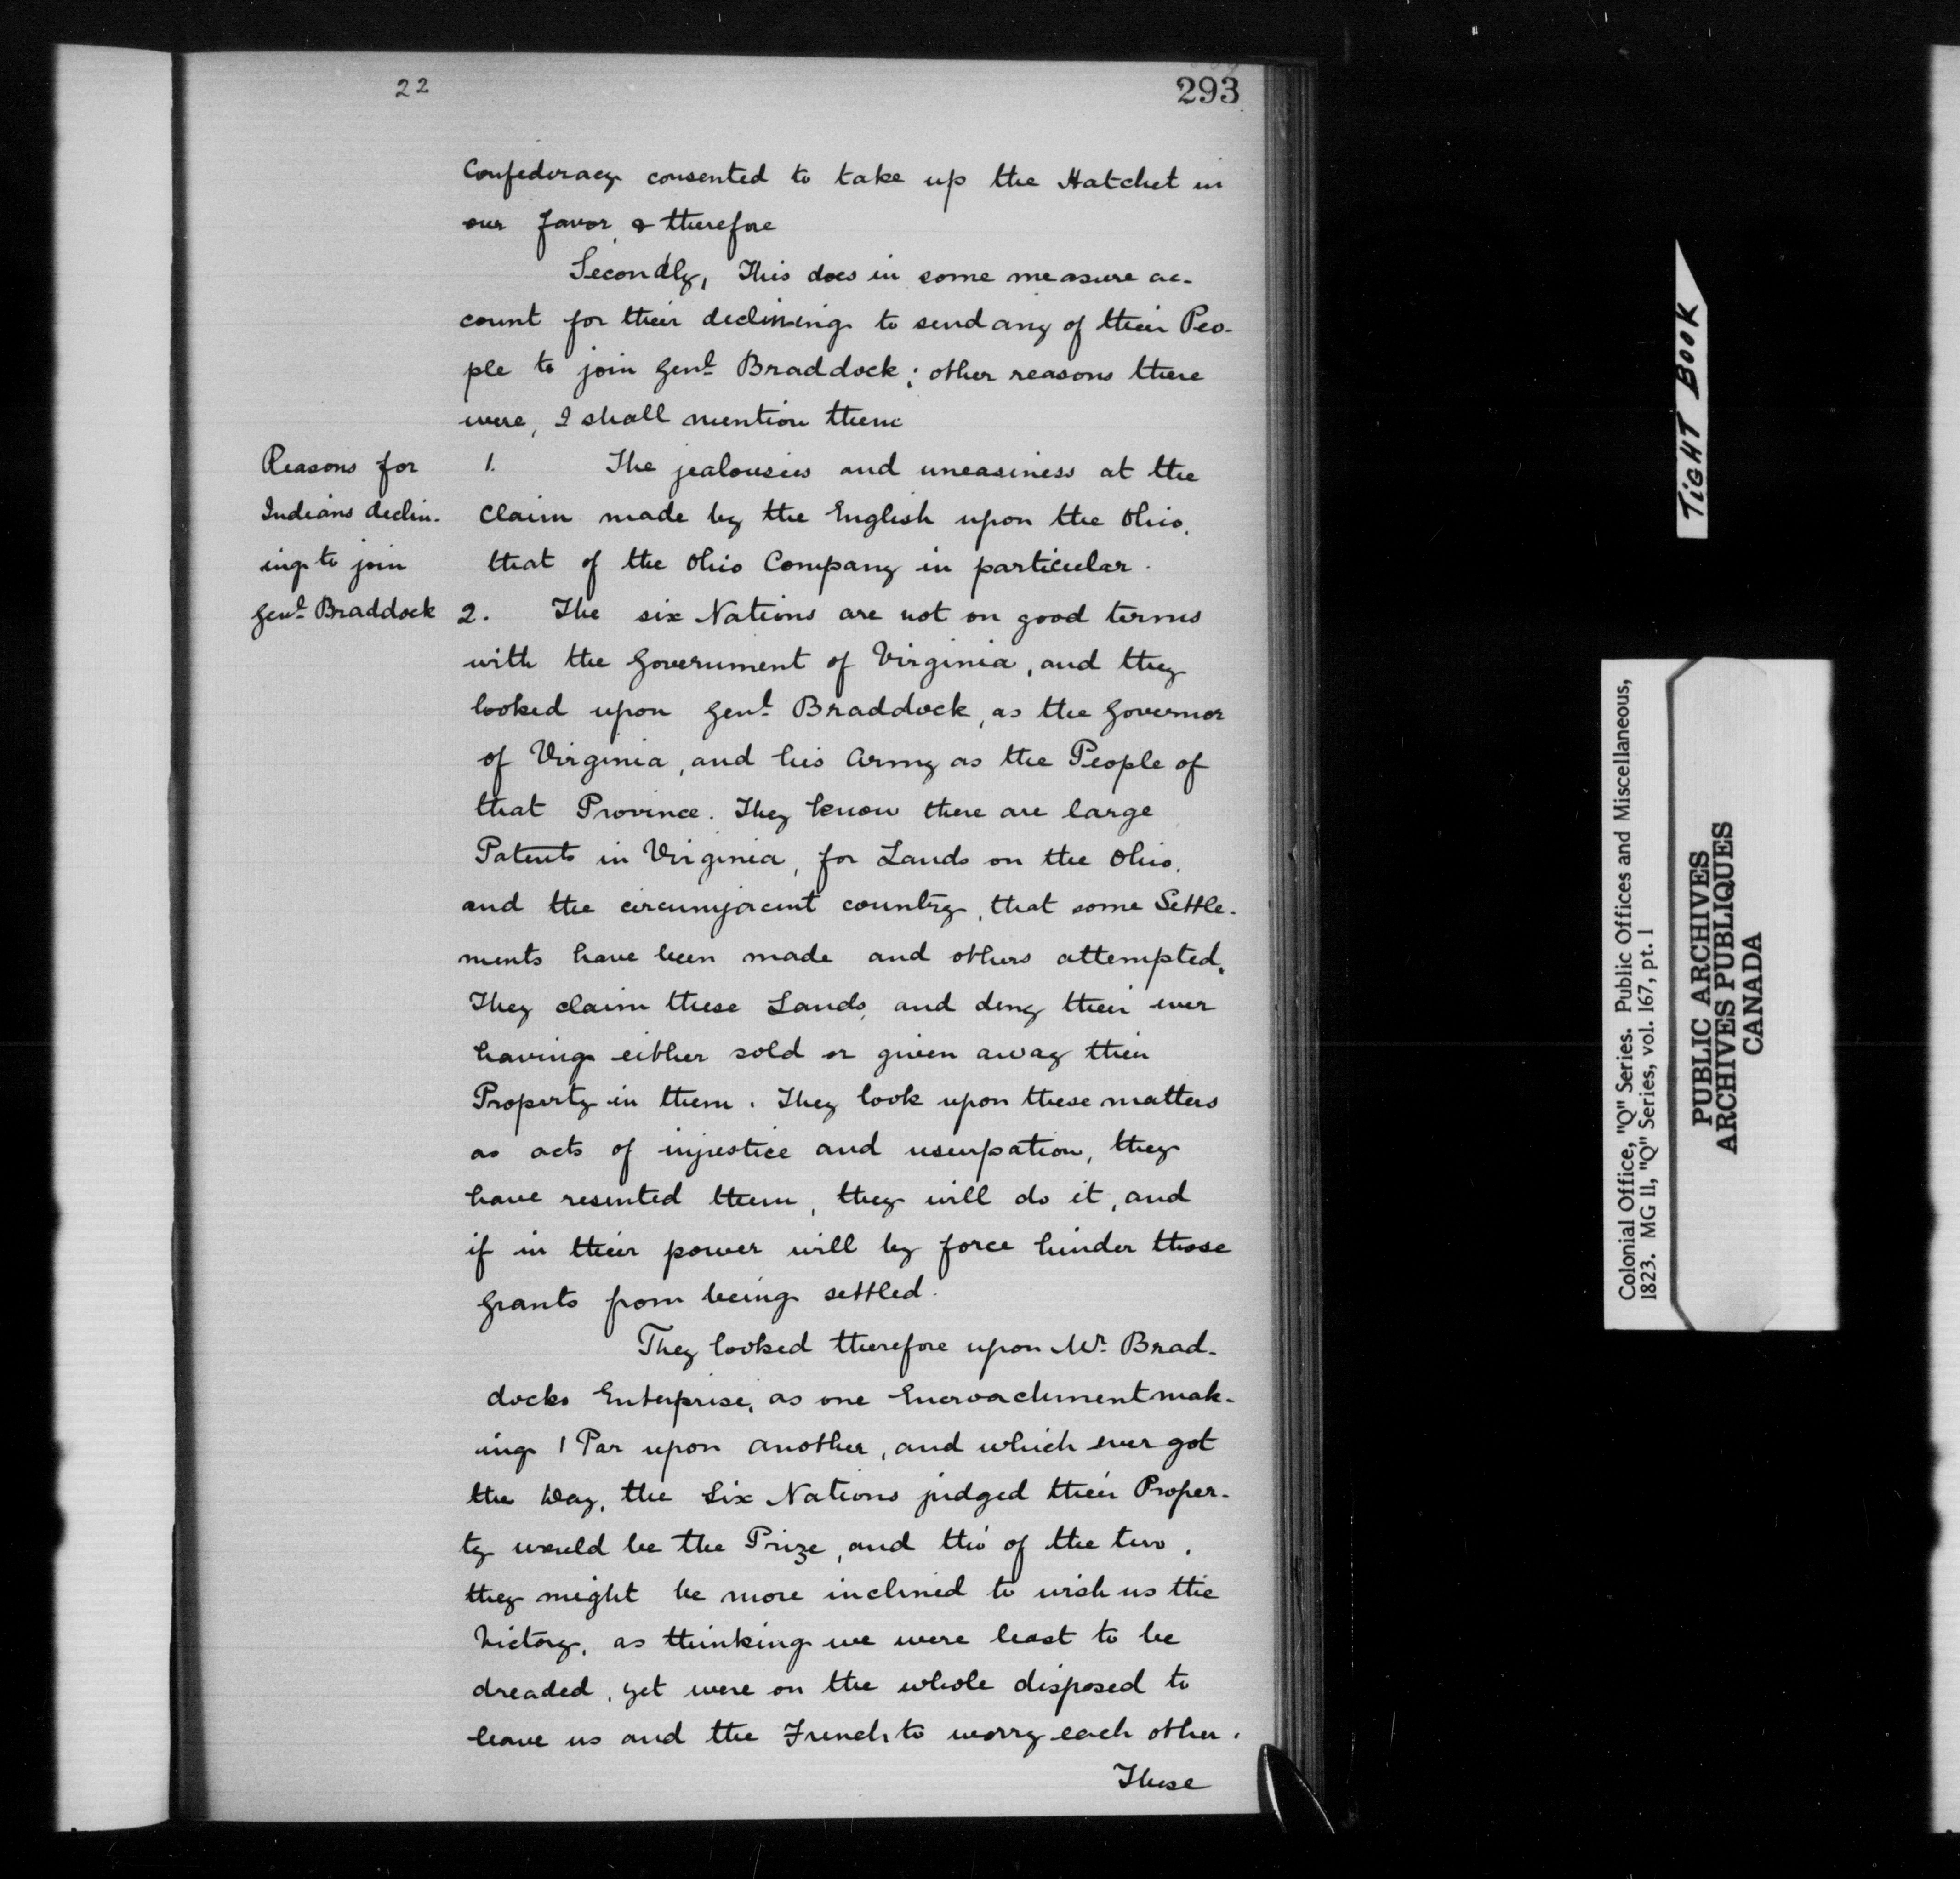 22
293
Confederacy consented to take up the Hatchet in
our favor, & therefore
Secondly, This does in some measure ac-
count for their declining to send any of their Peo-
ple to join Genl. Braddock; other reasons there
were, I shall mention them
Reasons for
Indians declin-
ing to join
Genl. Braddock
1. The jealousies and uneasiness at the
claim made by the English upon the Ohio,
that of the Ohio Company in particular.
2. The six Nations are not on good terms
with the Government of Virginia, and they
looked upon Genl. Braddock, as the Governor
of Virginia, and his Army as the People of
that Province. They know there are large
Patents in Virginia, for Lands on the Ohio,
and the circumjacent country, that some Settle-
ments have been made and others attempted,
They claim these Lands, and deny their ever
having either sold or given away their
Property in them. They look upon these matters
as acts of injustice and usurpation, they
have resented them, they will do it, and
if in their power will by force hinder those
Grants from being settled.
They looked therefore upon Mr. Brad-
docks Enterprise, as one Encroachment mak-
ing 1 Par upon another, and which ever got
the Day, the Six Nations judged their Proper-
ty would be the Prize, and tho' of the two,
they might be more inclined to wish us the
Victory, as thinking we were least to be
dreaded, yet were on the whole disposed to
leave us and the French to worry each other.
These
TIGHT BOOK
Colonial Office, "Q" Series. Public Offices and Miscellaneous,
1823. MG 11, "Q" Series, vol. 167, pt. 1
PUBLIC ARCHIVES
ARCHIVES PUBLIQUES
CANADA